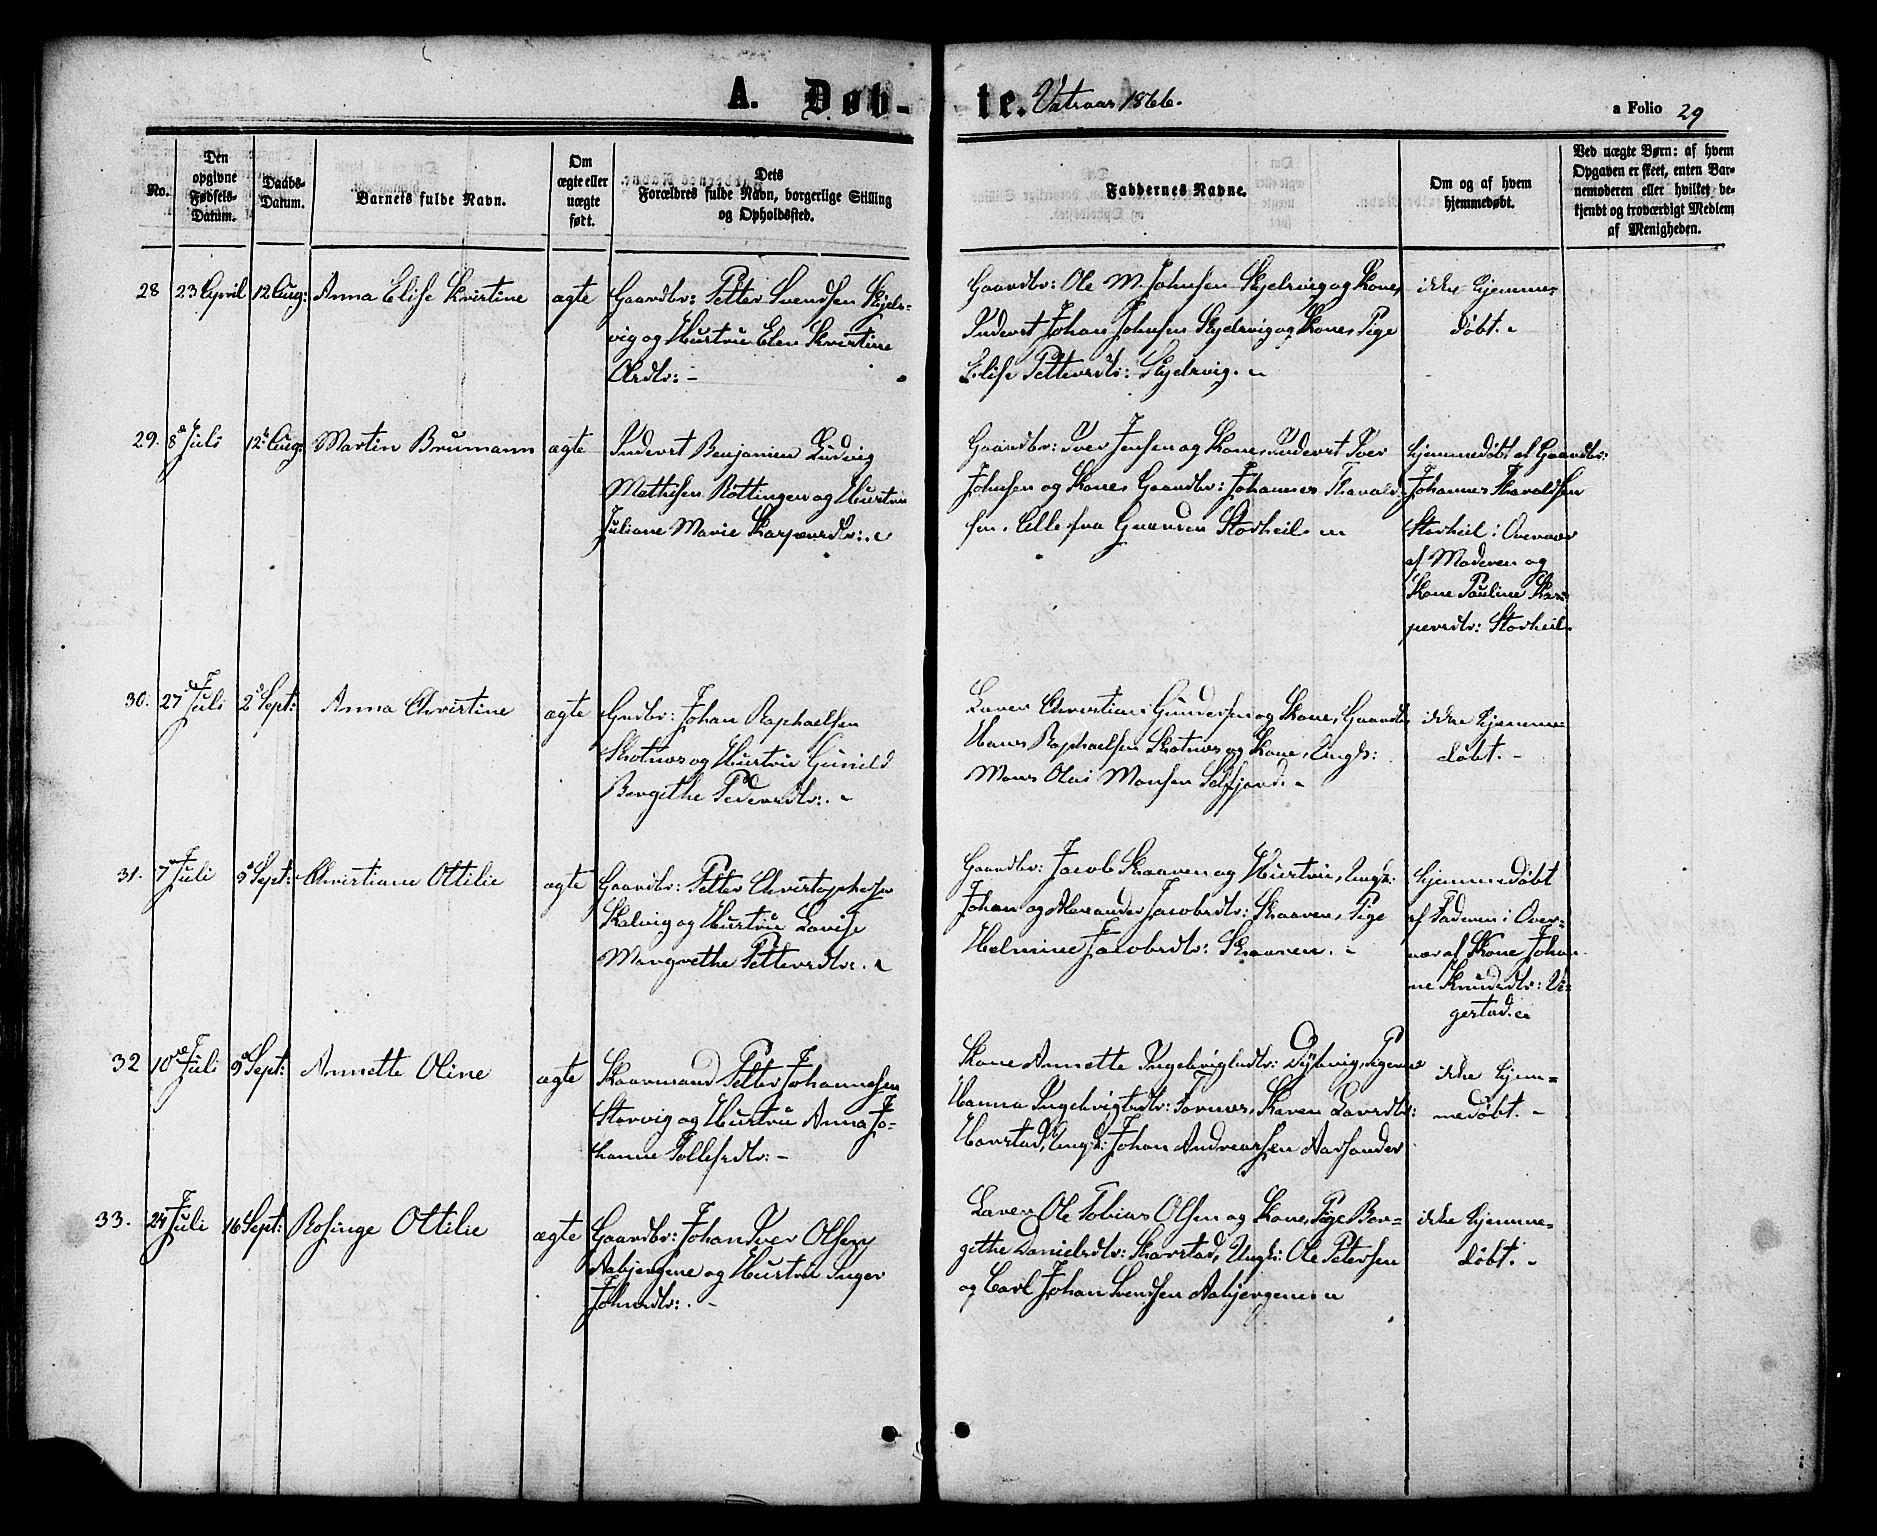 A. Døb-
te. Vatnaas 1866.
a Folio 29
No.
Den
opgivne
Fødsels-
Datum.
Daabs-
Datum.
Barnets fulde Navn.
Om
ægte eller
uægte
født.
Dets
Forældres fulde Navn, borgerlige Stilling
og Opholdssted.
Faddernes Navne.
Om og af hvem
hjemmedøbt.
Ved uægte Børn: af hvem
Opgaven er skeet, enten Bar-
nemoderen eller hvilket be-
kjendt og troværdigt Medlem
af Menigheden.
28 23 April 12 Aug: Anna Elise Kristine ægte
Gaardbr: Petter Svendsen Skjels-
vig og Hustru Elen Kristine
Olsdtr: -
Gaardbr: Ole M. Johnsen Skjelsvig og Kone,
Inderst Johan Johnsen Skjelsvig og Kone, Pige
Elise Pettersdtr: Skjelsvig.
ikke hjemme-
døbt.
29. 8 Juli 12 Aug: Martin Brumann ægte
Inderst Benjamin Ludvig
Mathisen Røttingen og Hustru
Juliane Marie Kaspersdtr:.
Gaardbr: Iver Jensen og Kone, Inderst Iver
Johnsen og Kone, Gaardbr: Johannes Thorvald-
sen. Alle fra Gaarden Storheil.
hjemmedøbt af Gaardbr:
Johannes Thorvaldsen
Storheil i Overvær
af Moderen og
Kone Pauline Kas-
persdtr: Storheil.
30. 27 Juli 2 Sept: Anna Christine ægte
Grdbr: Johan Raphaelsen
Skotnes og Hustru Gunild
Bergithe Pedersdtr:.
Larer Christian Gundersen og Kone, Gaardb:
Hans Raphaelsen Skotnes og Kone, Ungk:
Mons Olai Monsen Selfjord.
ikke hjemme-
døbt. -
31. 7 Juli 9 Sept: Christiane Ottilie ægte
Gaardbr: Petter Christophersen
Kalvig og Hustru Lovise
Margrethe Pettersdtr:.
Gaardbr: Jacob Skaaren og Hustru, Ungk:
Johan og Alexander Jacobsdtr: Skaaren, Pige
Helmine Jacobsdtr: Skaaren.
hjemmedøbt
af Faderen i Over-
vær af Kone Johan-
ne Knudsdtr: Ve-
gestad.
32 10 Juli 9 Sept: Annette Oline ægte
Kaarmand Petter Johannesen
Storvig og Hustru Anna Jo-
hanne Tollefsdtr: -
Kone Annette Ingebrigtsdtr: Dybvig, Pigerne
Hanna Ingebrigtsdtr: Tornes, Karen Larsdtr:
Harstad, Ungk: Johan Andreassen Aarsander
ikke hjem-
medøbt. -
33. 24 Juli 16 Sept: Rosinge Ottilie ægte
Gaardbr: Johan Iver Olsen
Aabjergene og Hustru Inger
Johnsdtr:. -
Larer Ole Tobias Olsen og Kone, Pige Ber-
githe Danielsdtr: Skarstad, Ungk: Ole Petersen
og Carl Johan Svendsen Aabjergene.
ikke hjemme-
døbt. -